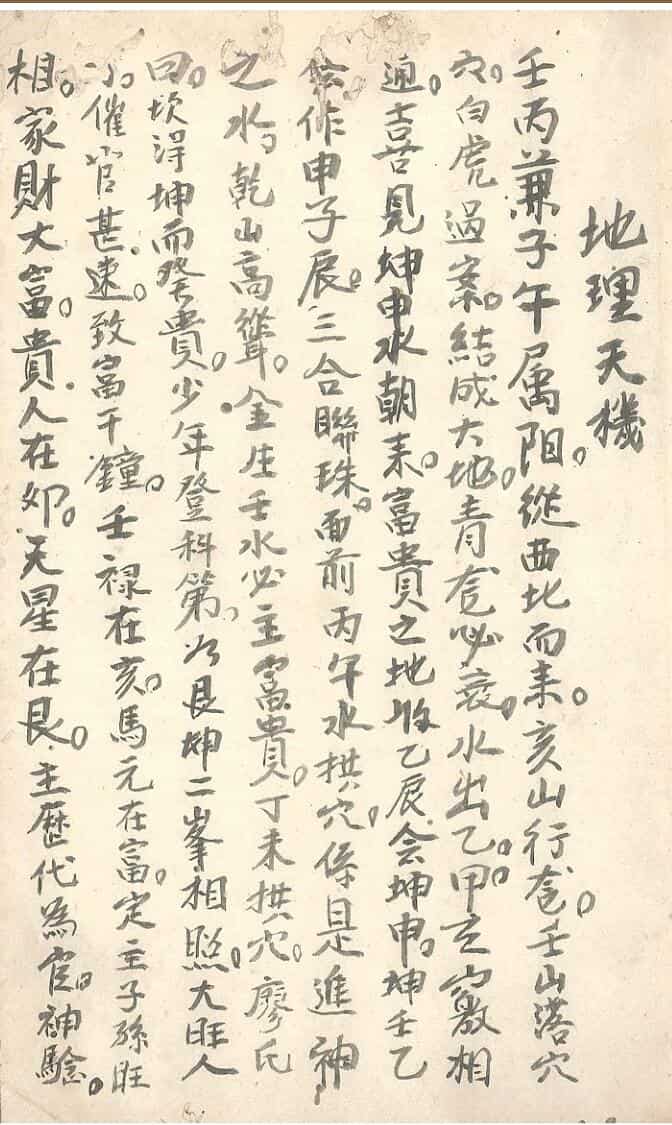 地理天機
壬丙兼子午屬陽。從西北而来。亥山行龙。壬山落穴
穴。白虎過案。結成大地。青龙必衰。水出乙。甲玄竅相
通。喜見坤申水朝来。富貴之地收乙辰会坤申。坤壬乙
作申子辰。三合聯珠。面前丙午水拱穴。係是進神
之水。乾山高聳。金生壬水必主富貴。丁未拱穴。廖氏
曰。坎得坤而發貴。少年登科第。艮坤二峯相照。大旺人
催官甚速。致富千鐘。壬禄在亥。馬元在富。定主子孫旺
相。家財大富。貴人在卯。天星在艮。主歷代為官。神驗。